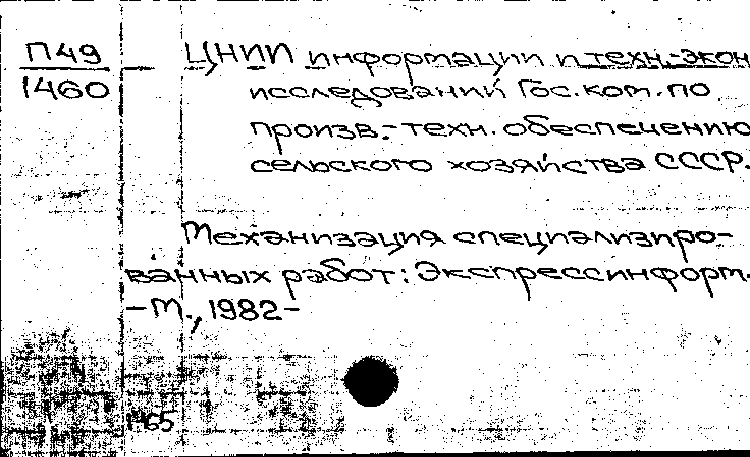 П49
1460
ЦНИИ информации и техн.-экон
исследований Гос.ком.по
произв.-техн. обеспечению
сельского хозяйства СССР.
Механизация специализиро-
ванных работ: Экспрессинформ.
-М., 1982-
1465